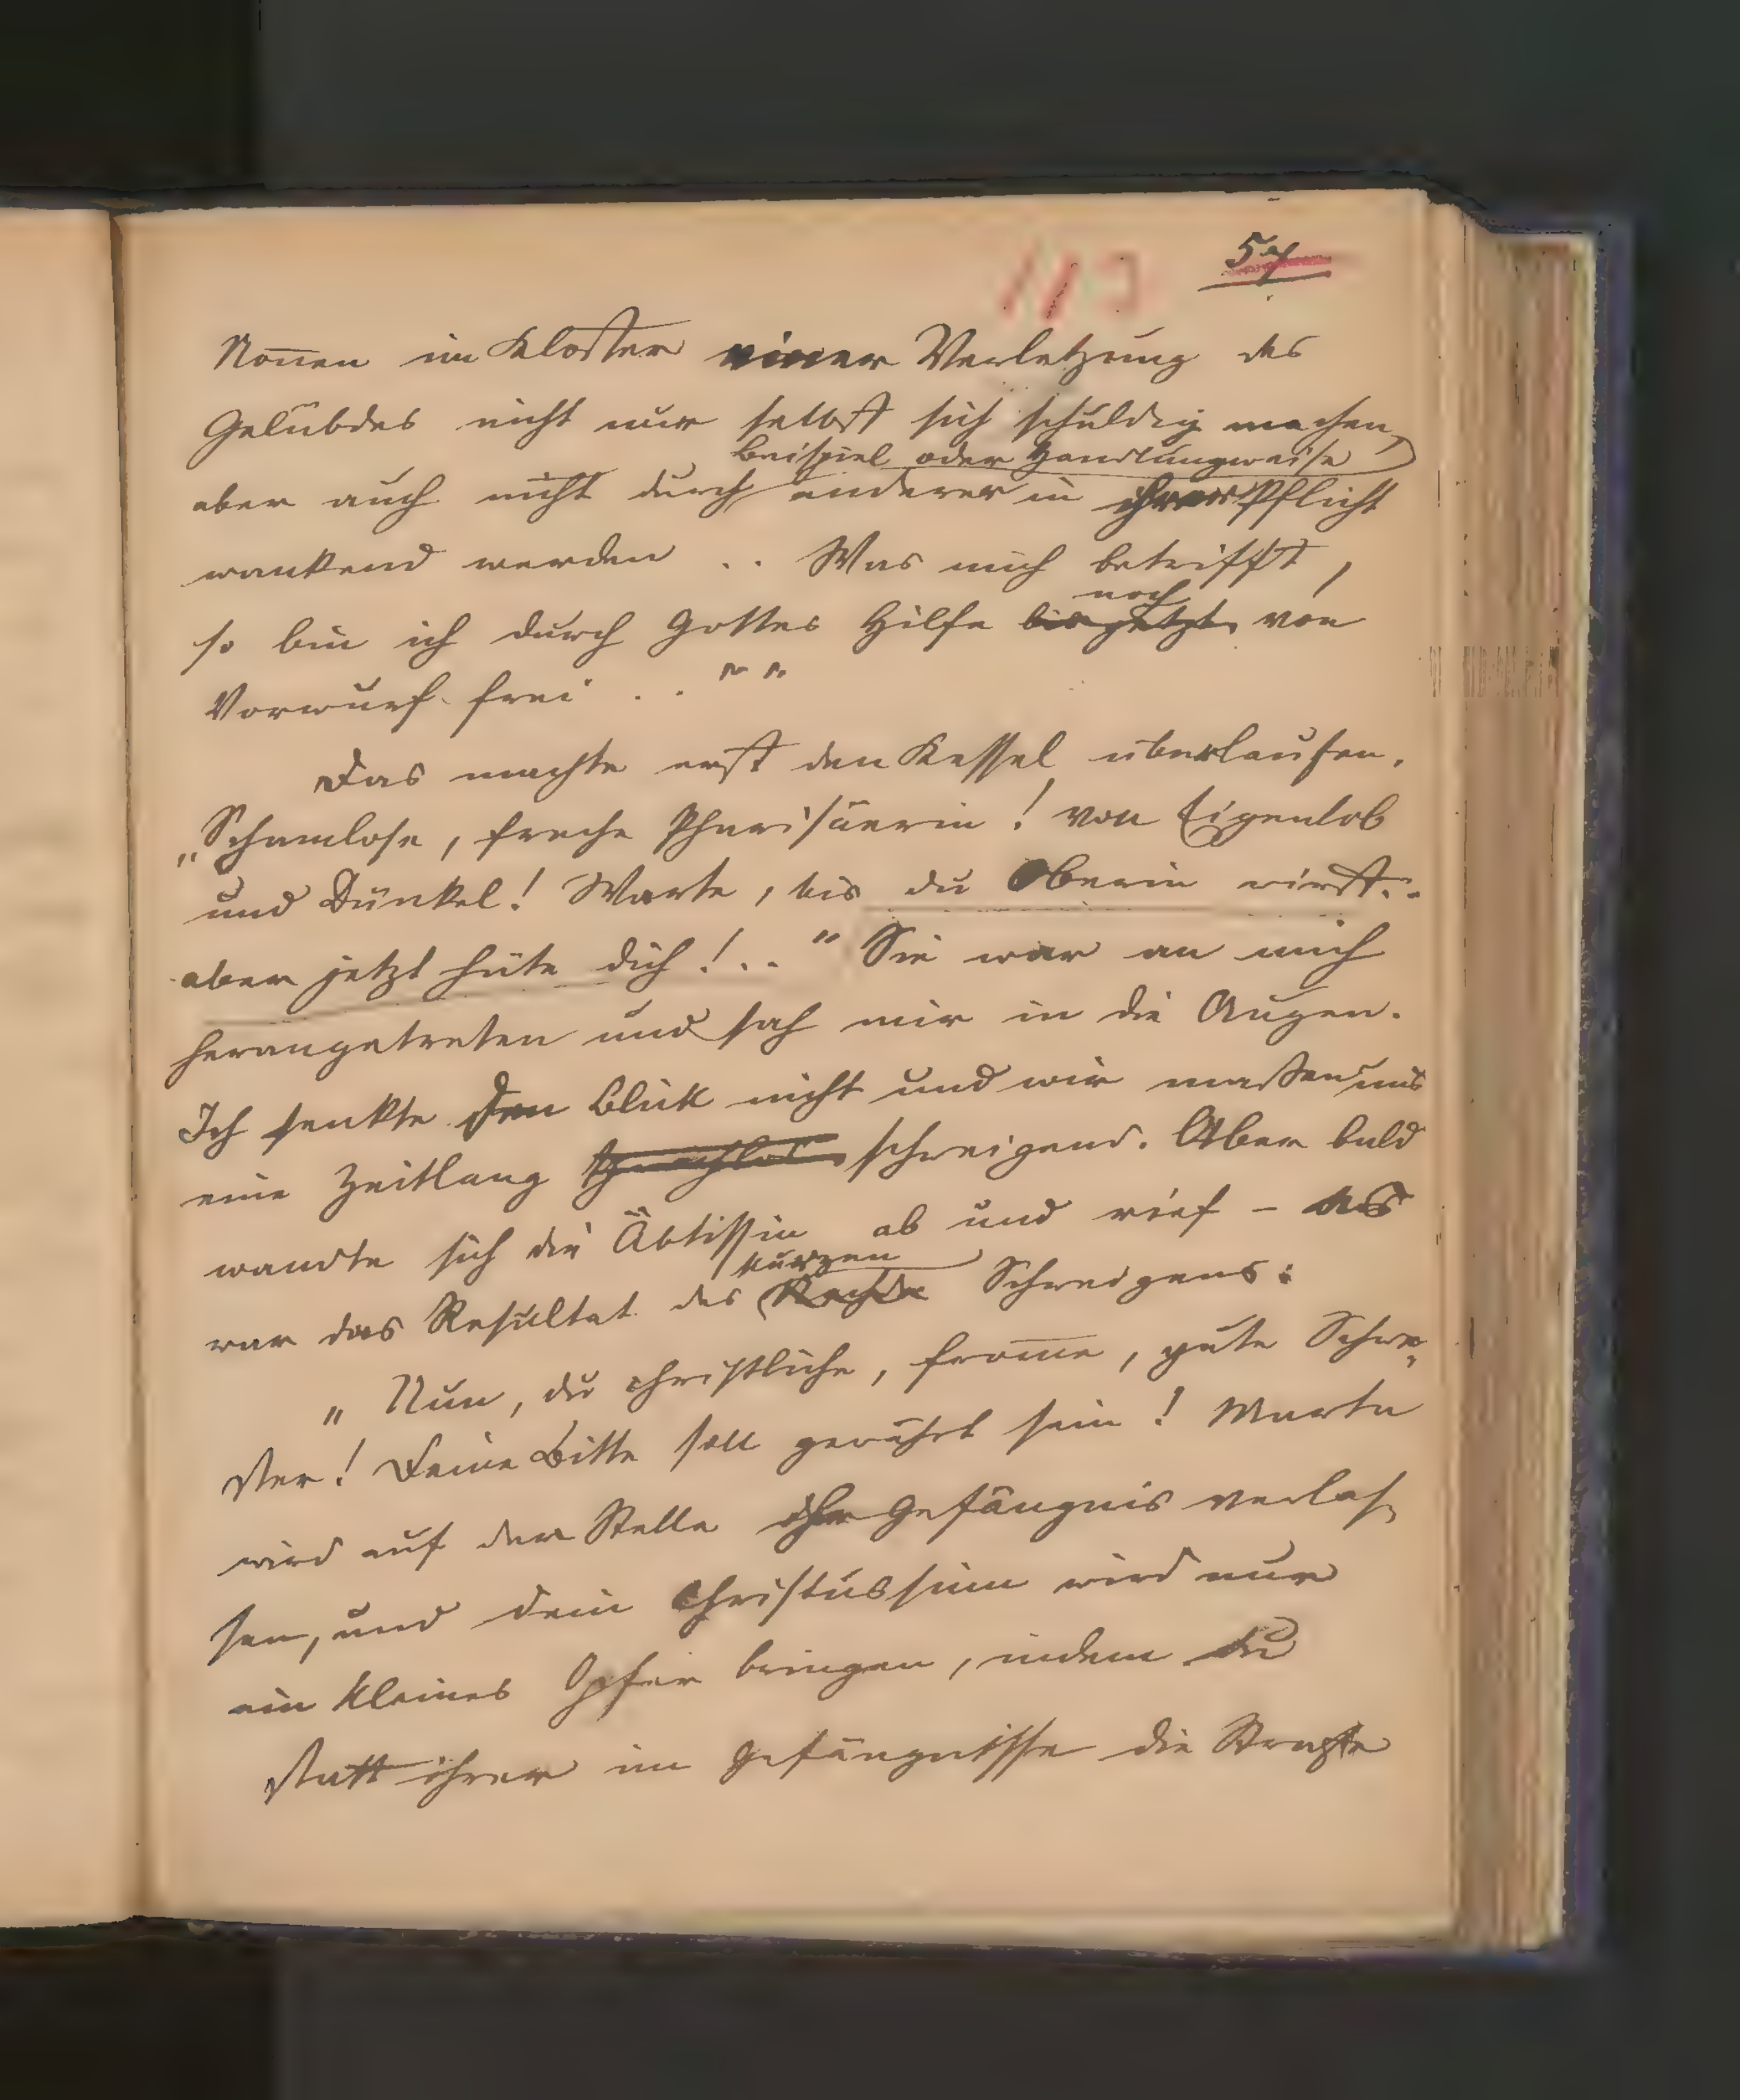 113 57
Nonnen im Kloster einer Verletzung des
Gelübdes nicht nur selbst sich schuldig machen,
Beispiel oder Handlungweise
aber auch nicht durch anderer in ihrer Pflicht
wankend werden .. Was mich betrifft,
noch
so bin ich durch Gottes Hilfe bis jetzt von
Vorwurf frei .. ""
Das machte erst den Kessel überlaufen.
„Schamlose, freche Pharisäerin! von Eigenlob
und Dünkel! Warte, bis du Oberin wirst..
aber jetzt hüte dich!.." Sie war an mich
herangetreten und sah mir in die Augen.
Ich senkte den Blick nicht und wir maßen uns
eine Zeitlang sprachlos schweigend. Aber bald
wandte sich die Äbtissin ab und rief – das
kurzen
war das Resultat des Schweigens:
„Nun, du christliche, fromme, gute Schwe-
ster! Deine Bitte soll gewährt sein! Marta
wird auf der Stelle ihr Gefängnis verlas-
sen, und dein Christussinn wird nur
ein kleines Opfer bringen, indem du
statt ihrer im Gefängnisse die Strafe